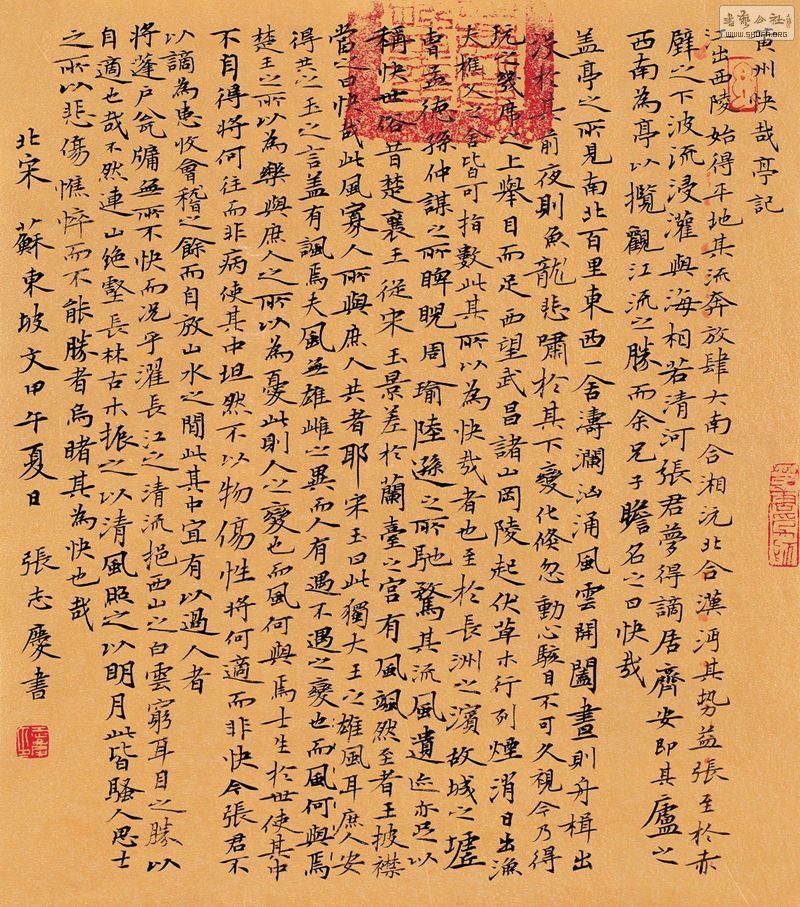 黄州快哉亭記
江出西陵始得平地其流奔放肆大南合湘沅北合漢沔其勢益張至於赤
壁之下波流浸灌與海相若清河張君夢得謫居齊安即其廬之
西南為亭以攬觀江流之勝而余兄子瞻名之曰快哉
盖亭之所見南北百里東西一舍濤瀾汹涌風雲開闔晝則舟楫出
没於其前夜則魚龍悲嘯於其下變化倏忽動心駭目不可久視今乃得
玩之几席之上舉目而足西望武昌諸山岡陵起伏草木行列煙消日出漁
夫樵父之舍皆可指數此其所以為快哉者也至於長洲之濱故城之墟
曹孟德孫仲謀之所睥睨周瑜陸遜之所馳騖其流風遺迹亦足以
稱快世俗昔楚襄王從宋玉景差於蘭臺之宮有風颯然至者王披襟
當之曰快哉此風寡人所與庶人共者耶宋玉曰此獨大王之雄風耳庶人安
得共之玉之言盖有諷焉夫風無雄雌之異而人有遇不遇之變也而風何與焉
楚王之所以為樂與庶人之所以為憂此則人之變也而風何與焉士生於世使其中
不自得將何往而非病使其中坦然不以物傷性將何適而非快今張君不
以謫為患收會稽之餘而自放山水之間此其中宜有以過人者
將蓬户瓮牖無所不快而况乎濯長江之清流挹西山之白雲窮耳目之勝以
自適也哉不然連山絶壑長林古木振之以清風照之以明月此皆騷人思士
之所以悲傷憔悴而不能勝者烏睹其為快也哉
北宋 蘇東坡文甲午夏日 張志慶書
书艺公社
WWW.SHUFA.ORG